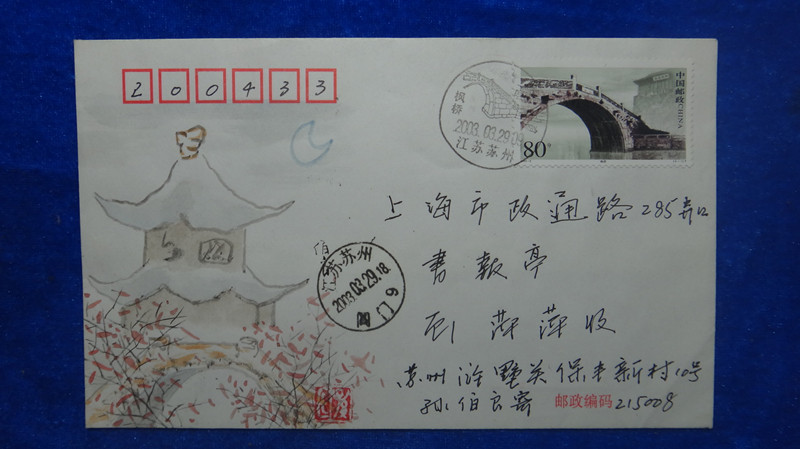 200433
中国邮政 CHINA
80
枫桥
2003.03.29.0
江苏苏州
上海市政通路285弄口
书报亭
江苏.苏州
2003.03.29.18
阊门 9
萍萍收
苏州浒墅关保丰新村10号
孙伯良寄
邮政编码 215008